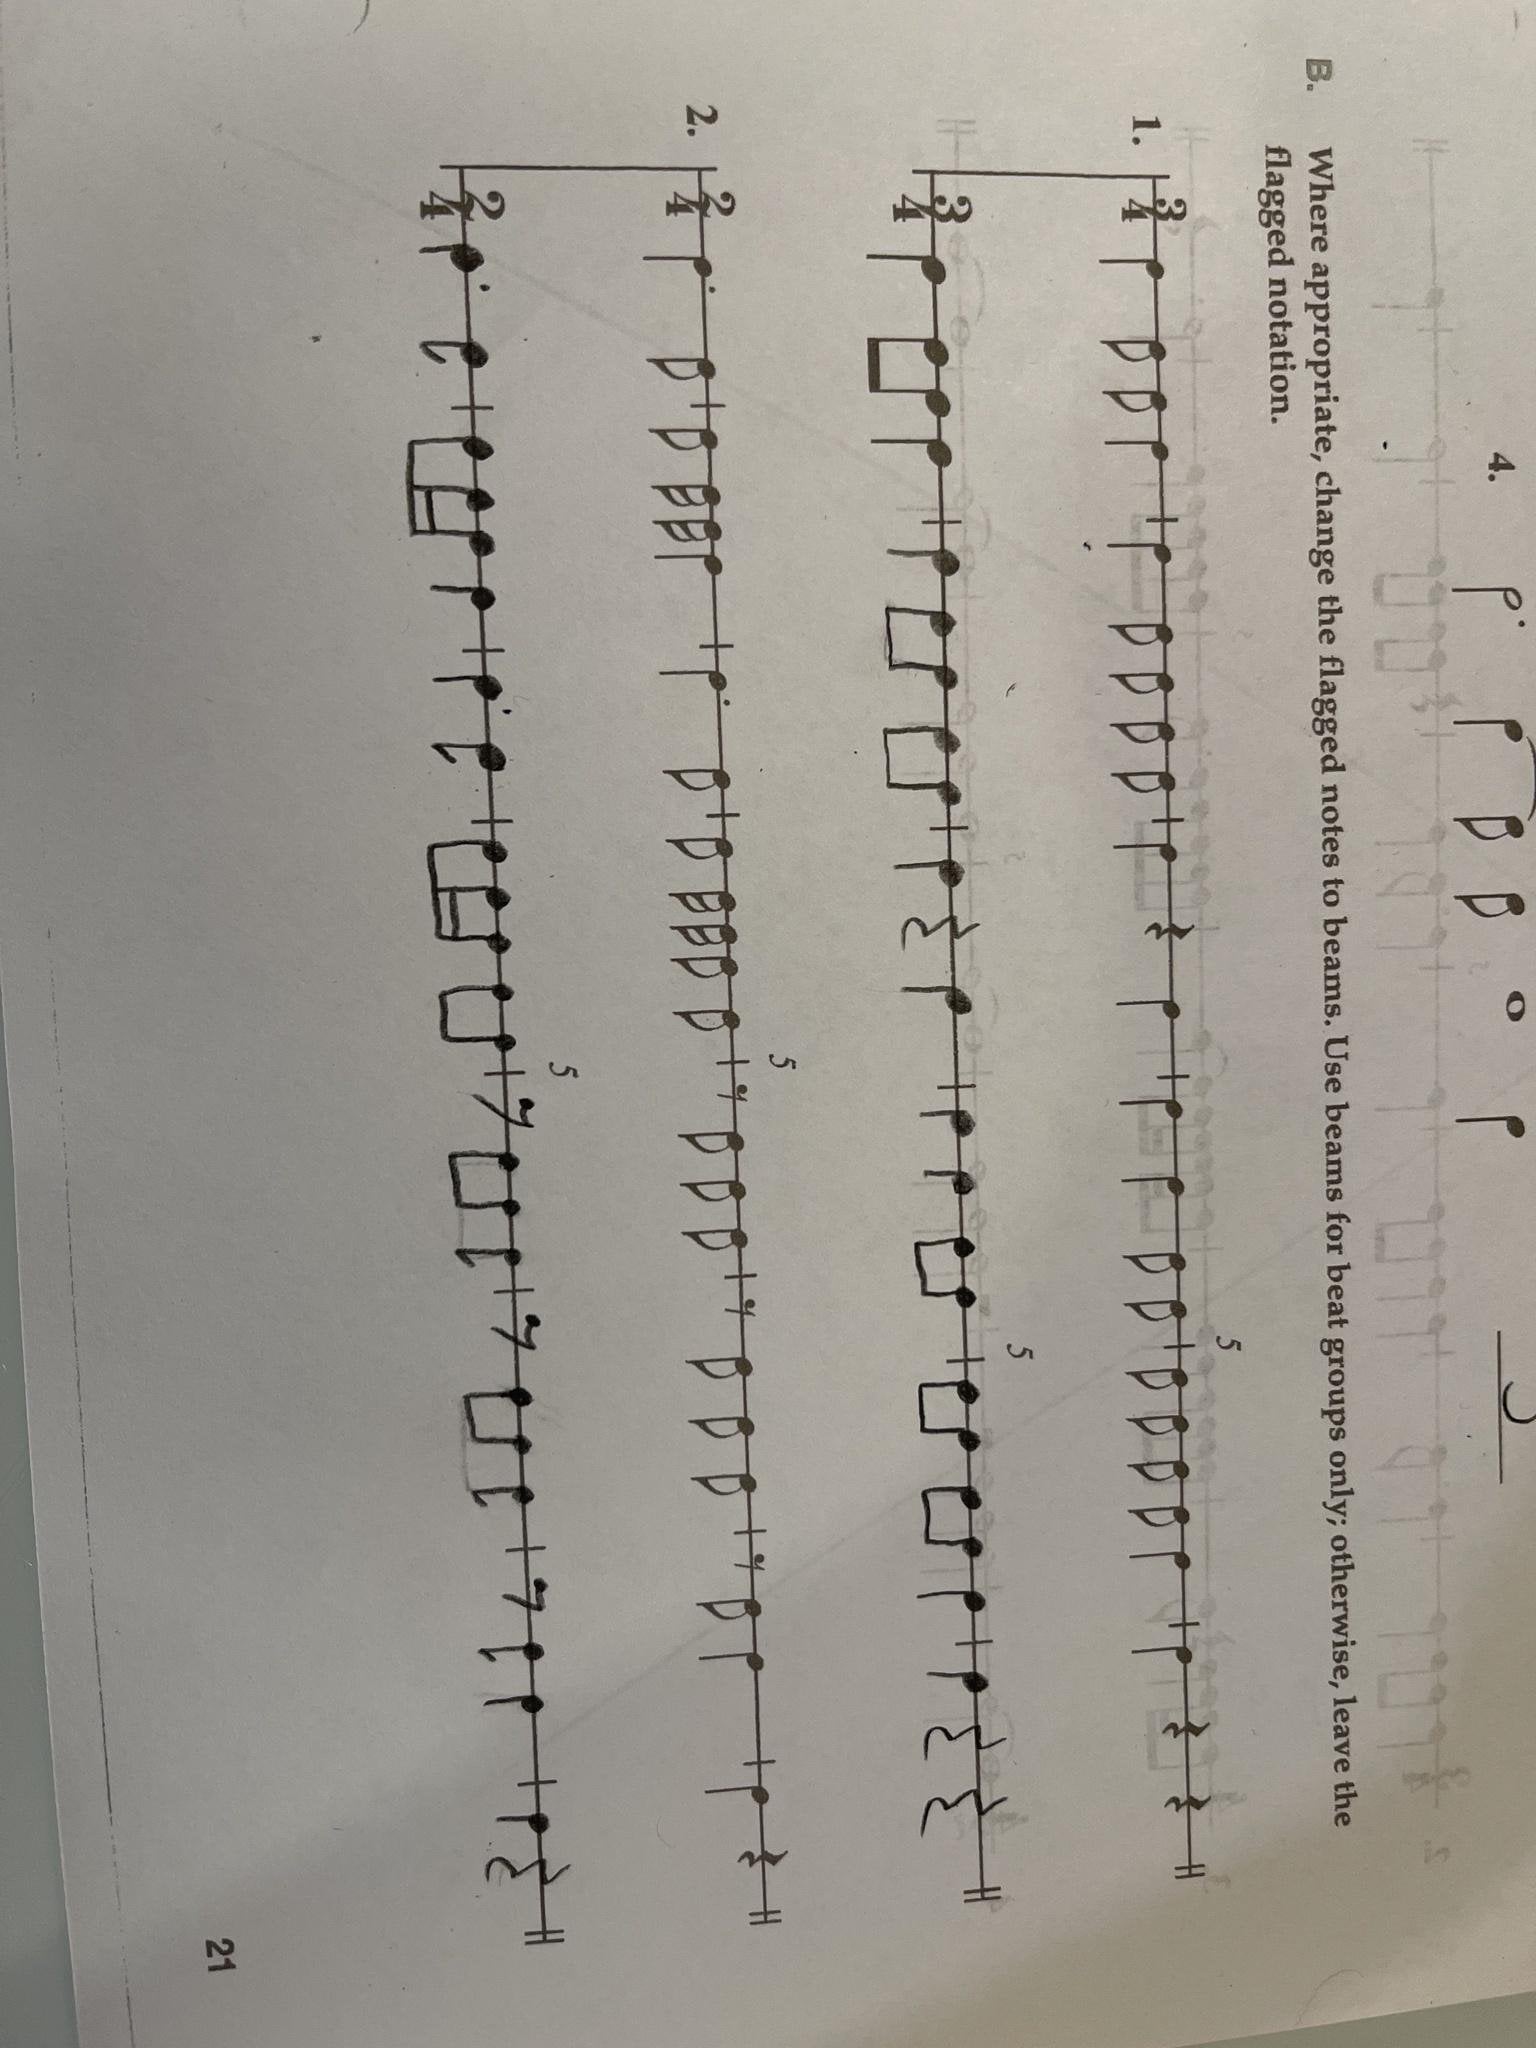 4.
B. Where appropriate, change the flagged notes to beams. Use beams for beat groups only; otherwise, leave the
flagged notation.
1. 3/4
5
3/4
5
2. 2/4
5
2/4
5
21